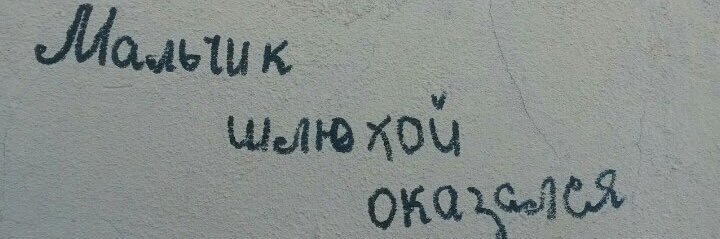 Мальчик
шлюхой
оказался